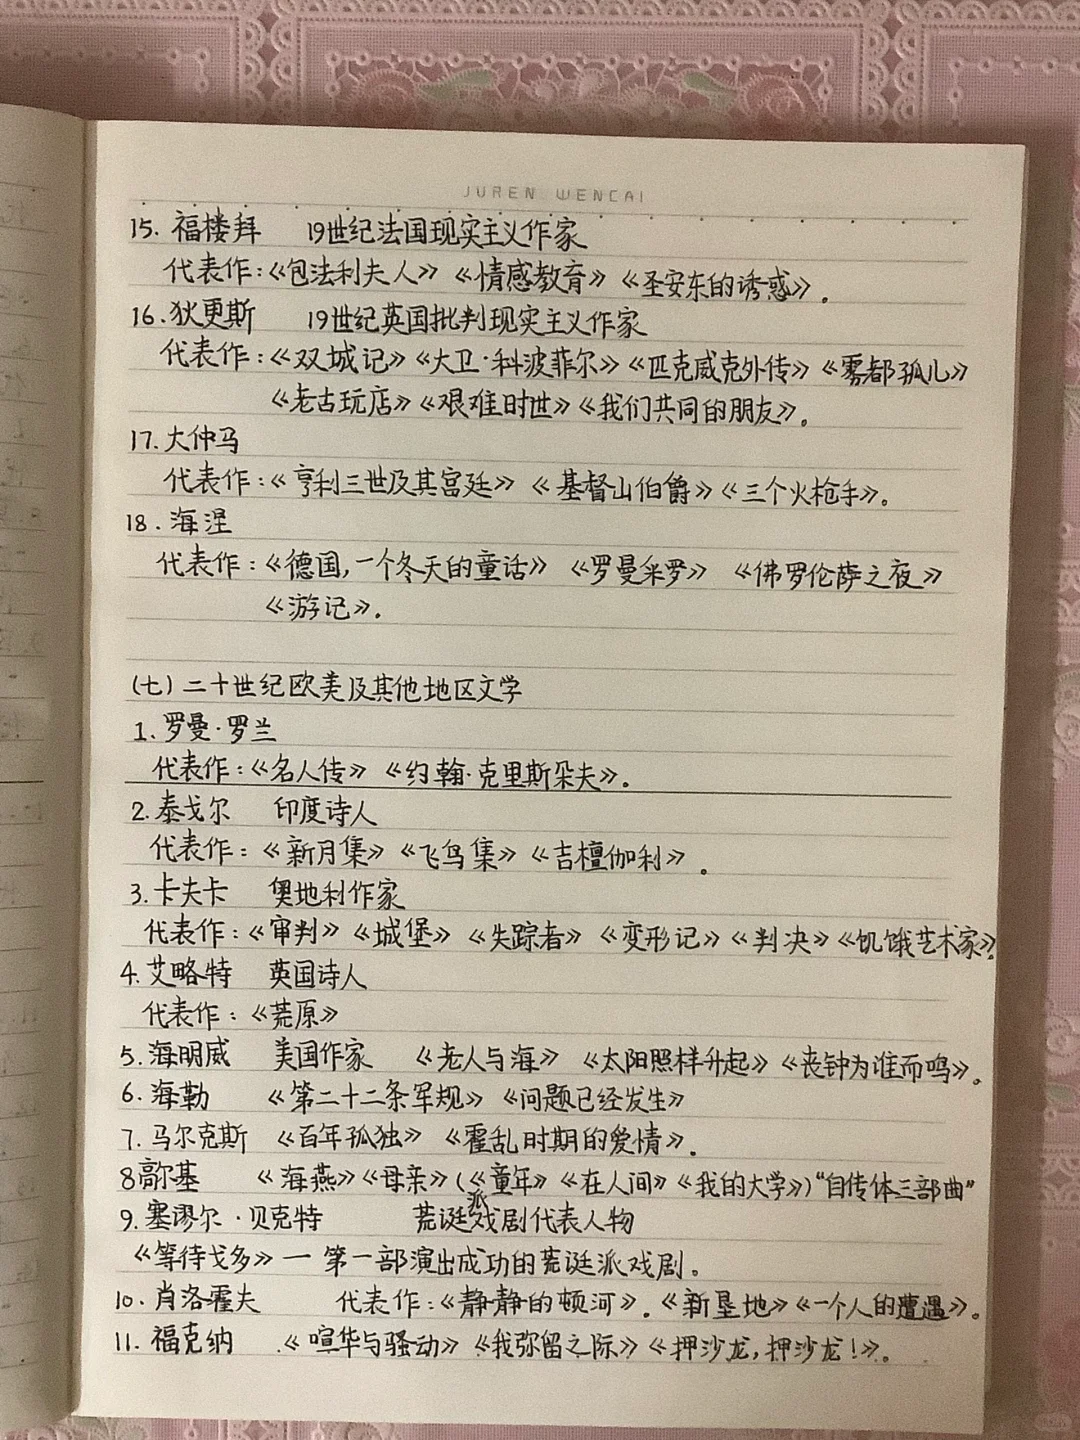 JUREN WENCAI
15. 福楼拜 19世纪法国现实主义作家
代表作:《包法利夫人》《情感教育》《圣安东的诱惑》.
16.狄更斯 19世纪英国批判现实主义作家
代表作:《双城记》《大卫·科波菲尔》《匹克威克外传》《雾都孤儿》
《老古玩店》《艰难时世》《我们共同的朋友》.
17.大仲马
代表作:《亨利三世及其宫廷》《基督山伯爵》《三个火枪手》.
18.海涅
代表作:《德国,一个冬天的童话》《罗曼采罗》《佛罗伦萨之夜》
《游记》.
(七)二十世纪欧美及其他地区文学
1.罗曼·罗兰
代表作:《名人传》《约翰·克里斯朵夫》.
2.泰戈尔 印度诗人
代表作:《新月集》《飞鸟集》《吉檀伽利》.
3.卡夫卡 奥地利作家
代表作:《审判》《城堡》《失踪者》《变形记》《判决》《饥饿艺术家》.
4.艾略特 英国诗人
代表作:《荒原》
5.海明威 美国作家 《老人与海》《太阳照样升起》《丧钟为谁而鸣》.
6.海勒 《第二十二条军规》《问题已经发生》
7.马尔克斯 《百年孤独》《霍乱时期的爱情》.
8高尔基 《海燕》《母亲》(《童年》《在人间》《我的大学》)“自传体三部曲”
9.塞谬尔·贝克特 荒诞派戏剧代表人物
《等待戈多》— 第一部演出成功的荒诞派戏剧.
10.肖洛霍夫 代表作:《静静的顿河》.《新垦地》《一个人的遭遇》.
11.福克纳 《喧华与骚动》《我弥留之际》《押沙龙,押沙龙!》.